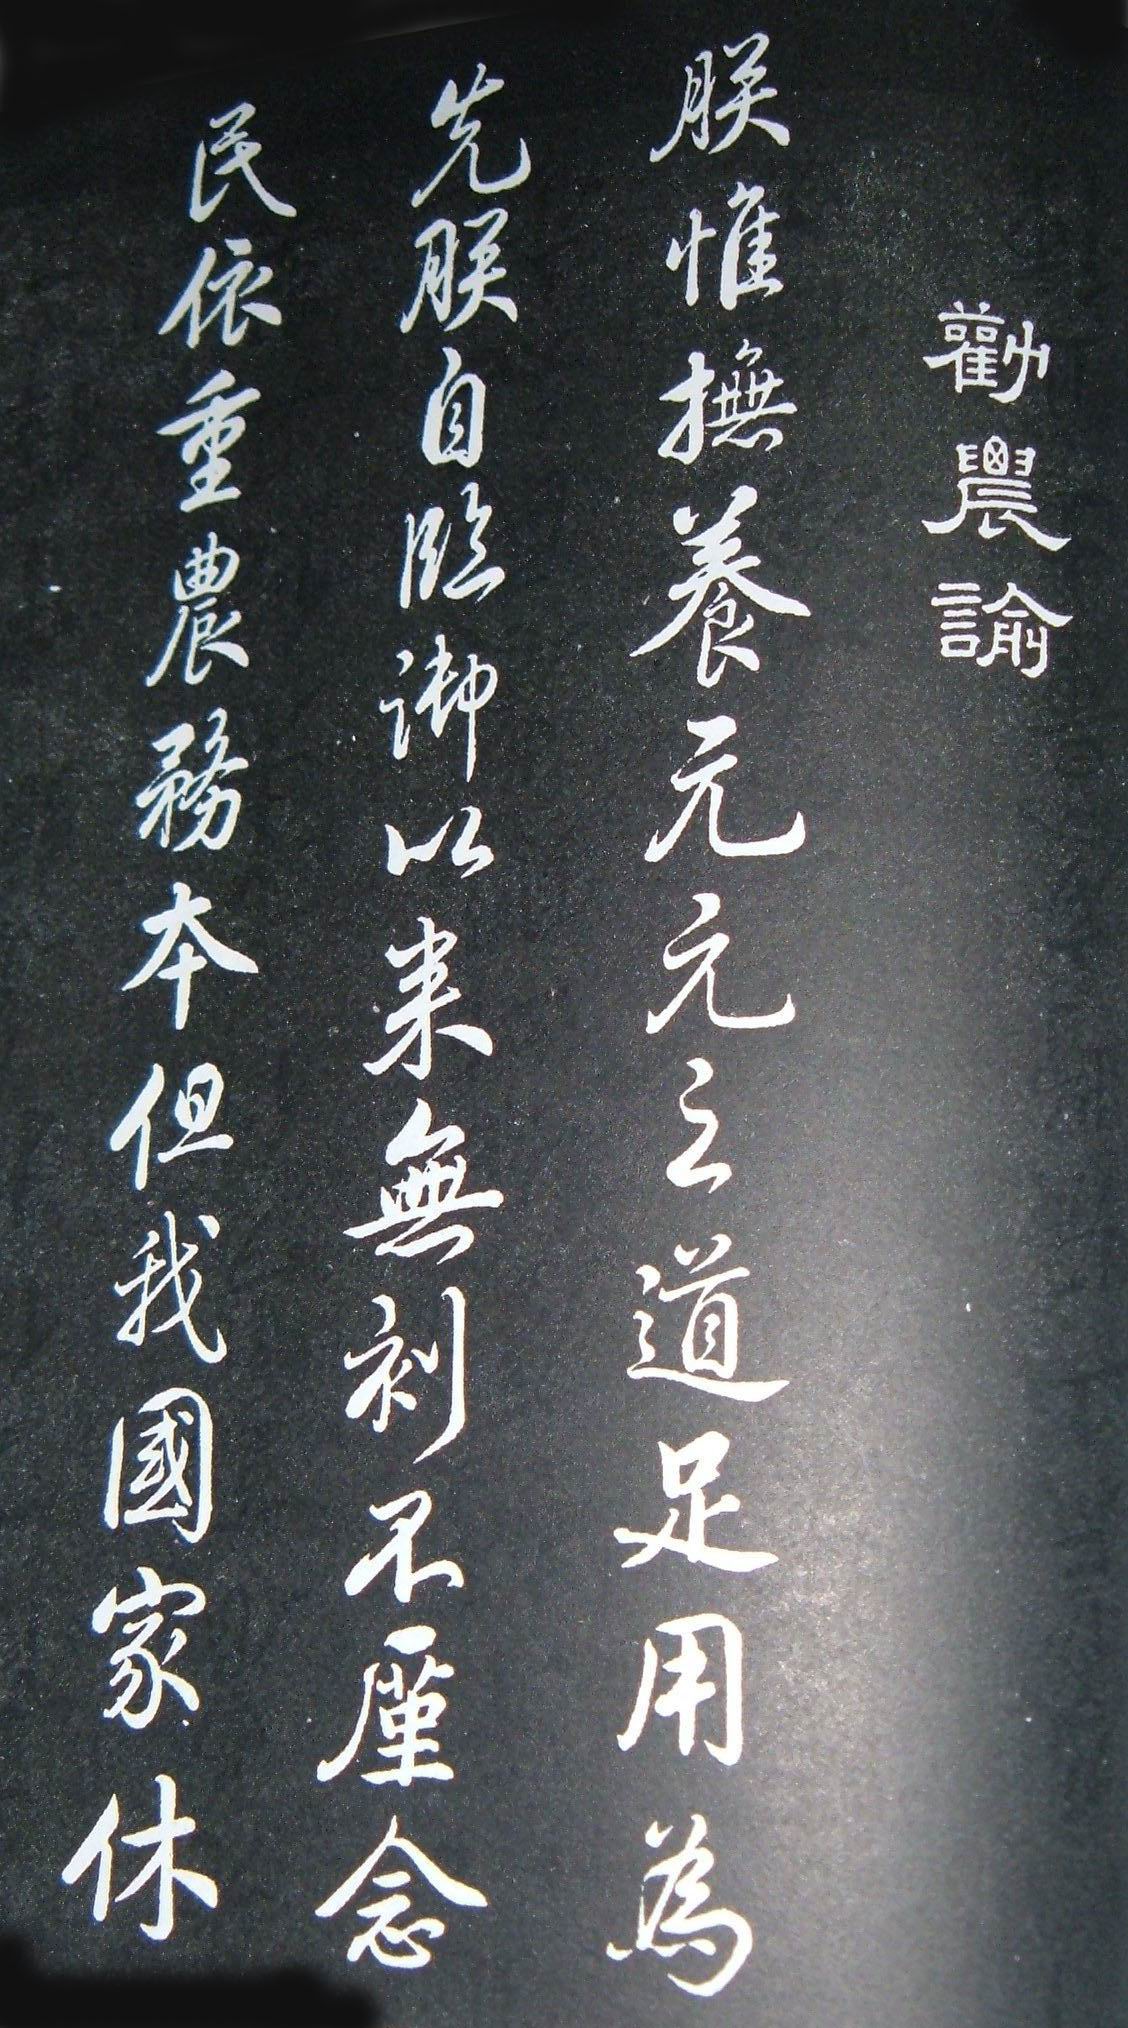 勸農諭
朕惟撫養元元之道足用為
先朕自臨御以来無刻不厪念
民依重農務本但我國家休